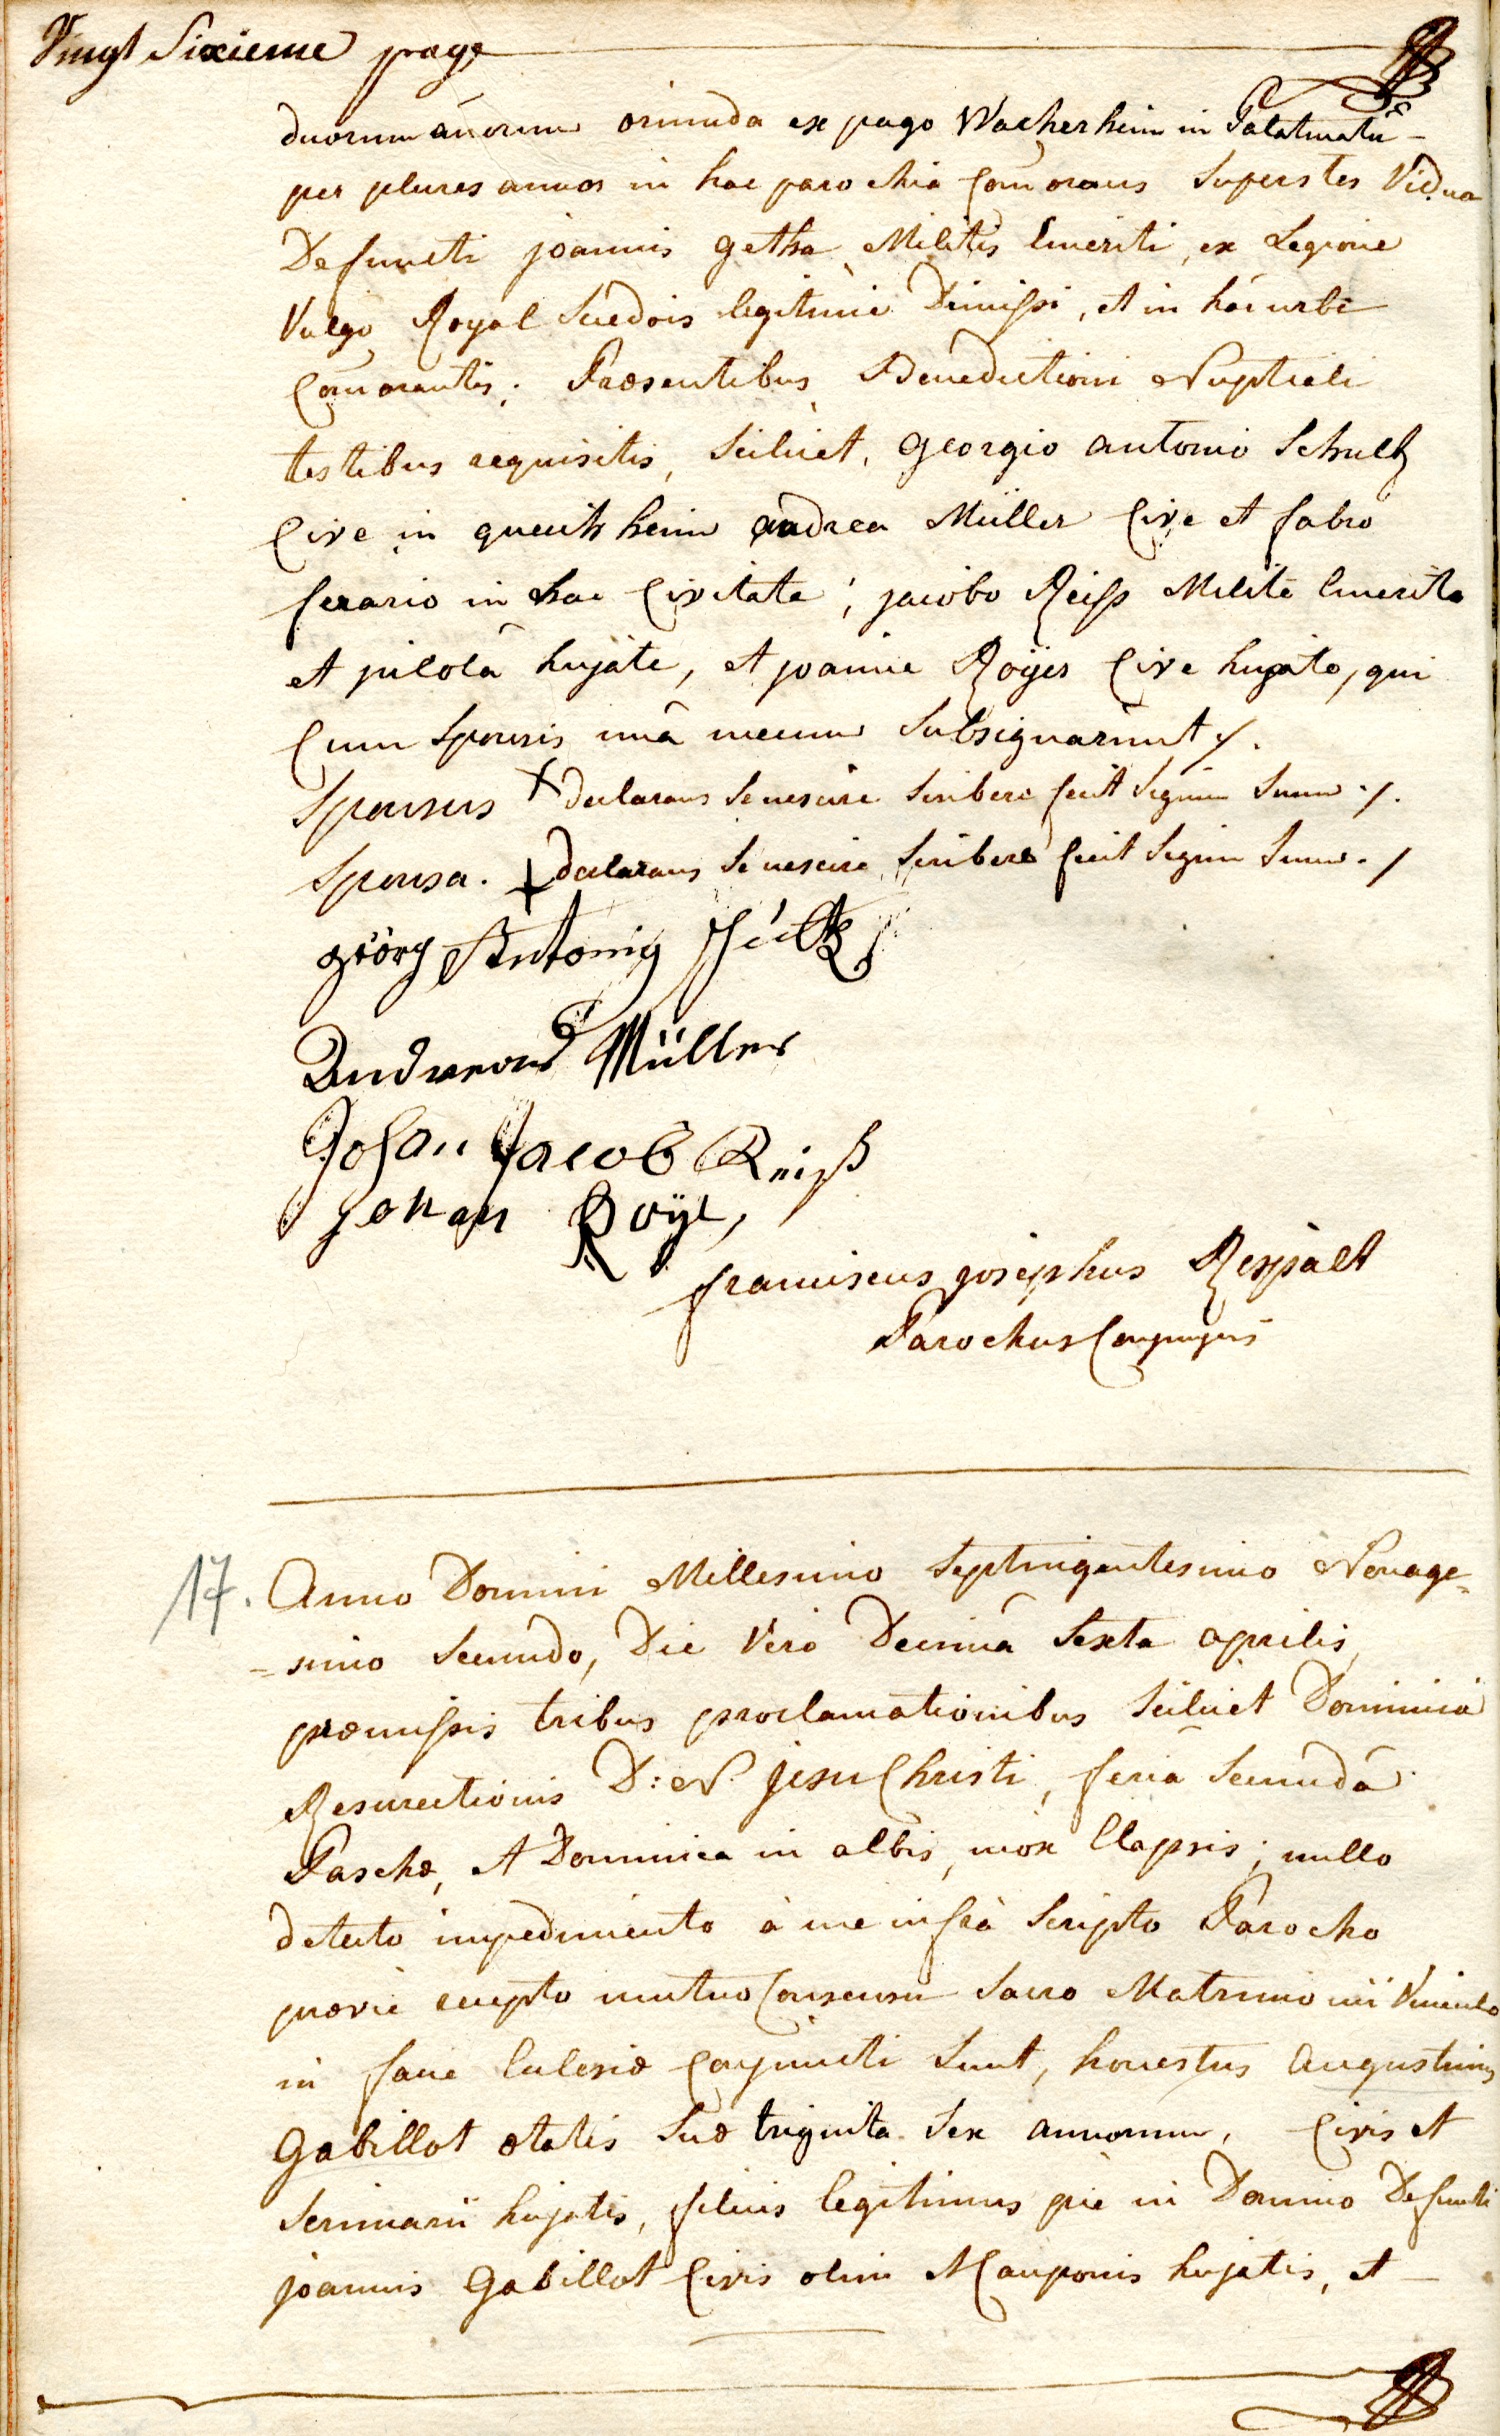 Vingt Sixieme page
duorum añorum oriunda ex pago Wacherheim in Palatinatu -
per plures annos in hac parochia Com̃orans Superstes Vidua
Defuncti joannis getha Militis Emeriti, ex Legione
Vulgo Royal Suedois legitimè Dimissi, et in hâc urbe
Com̃orantis; Præsentibus Benedictioni Nuptiali
testibus requisitis, Scilicet, georgio antonio Schultz
Cive in queichheim andrea Müller Cive et fabro
ferario in hac Civitate; jacobo Reiss Milite Emerito
et pilotâ hujate, et joanne Roÿer Cive hujate, qui
Cum Sponsis unâ mecum Subsignarunt ⁒.
Sponsus + declarans Se nescire Scribere fecit Signum Suum ⁒.
Sponsa. + declarans Se nescire Scribere fecit Signum Suum ./
görg Antonig Schultz
Andreas Müller
Johan Jacob Reiß
Johan Roÿe,
franciscus josephus Respalt
Parochus Conjungens
17. Anno Domini Millesimo Septingentesimo Nonage=
=simo Secundo, Die Vero Decimâ Sexta aprilis,
præmissis tribus proclamationibus Scilicet Dominicâ
Resurectionis D: N. jesu Christi, feria Secundâ
Paschæ, et Dominica in albis, mox Elapsis; nullo
detecto impedimento à me infrà Scripto Parocho
prævie accepto mutuo Consensu Sacro Matrimonii Vinculo
in facie Ecclesiæ Conjuncti Sunt, honestus Augustinus
Gabillot ætatis Suæ triginta Sex annorum, Civis et
Scriniarii hujatis, filius legitimus piè in Domino Defuncti
joannis Gabillot Civis olim Et Cauponis hujatis, et -